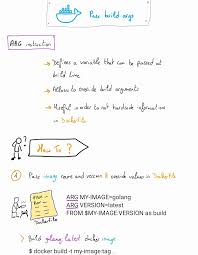 Pass build args
ARG instruction
→ Defines a variable that can be passed at
build time
→ Allows to override build arguments
→ Useful in order to not hardcode information
in Dockerfile
How To ?
1 Pass image name and version & override values in Dockerfile
ARG MY-IMAGE=golang
ARG VERSION=latest
FROM $MY-IMAGE:VERSION as build
> Build golang:latest docker image
$ docker build -t my-image:tag .